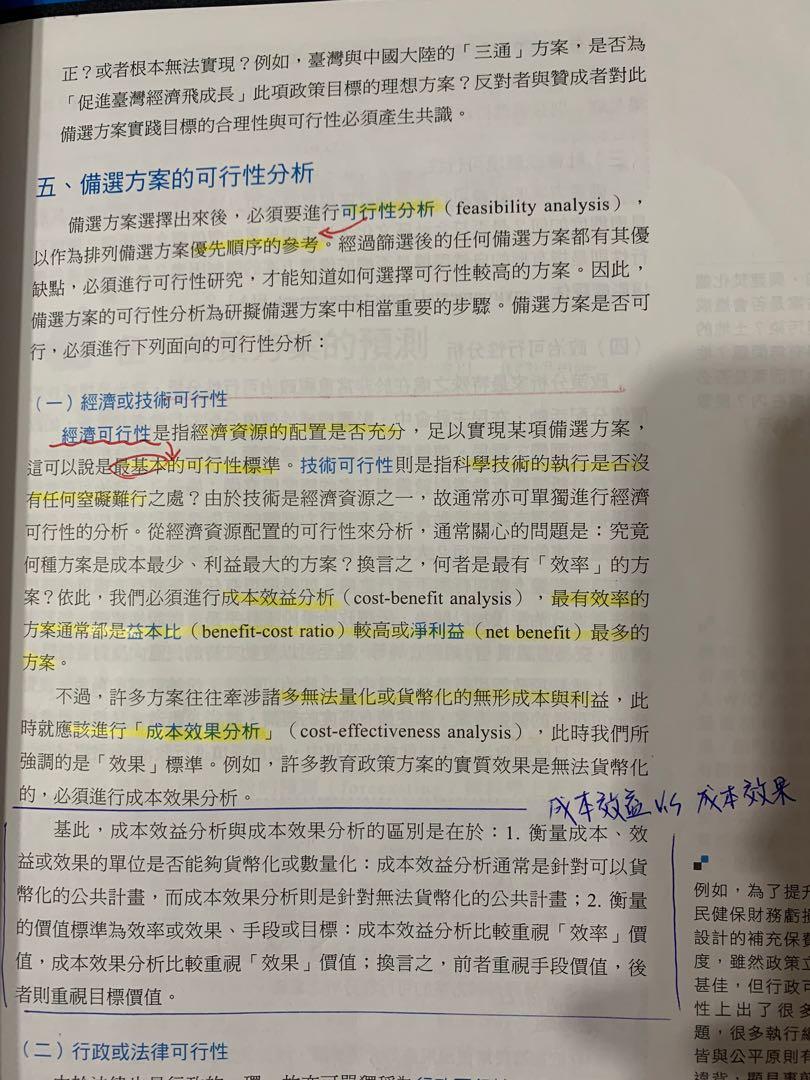 正？或者根本無法實現？例如，臺灣與中國大陸的「三通」方案，是否為
「促進臺灣經濟飛成長」此項政策目標的理想方案？反對者與贊成者對此
備選方案實踐目標的合理性與可行性必須產生共識。
五、備選方案的可行性分析
備選方案選擇出來後，必須要進行可行性分析（feasibility analysis），
以作為排列備選方案優先順序的參考。經過篩選後的任何備選方案都有其優
缺點，必須進行可行性研究，才能知道如何選擇可行性較高的方案。因此，
備選方案的可行性分析為研擬備選方案中相當重要的步驟。備選方案是否可
行，必須進行下列面向的可行性分析：
（一）經濟或技術可行性
經濟可行性是指經濟資源的配置是否充分，足以實現某項備選方案，
這可以說是最基本的可行性標準。技術可行性則是指科學技術的執行是否沒
有任何窒礙難行之處？由於技術是經濟資源之一，故通常亦可單獨進行經濟
可行性的分析。從經濟資源配置的可行性來分析，通常關心的問題是：究竟
何種方案是成本最少、利益最大的方案？換言之，何者是最有「效率」的方
案？依此，我們必須進行成本效益分析（cost-benefit analysis），最有效率的
方案通常都是益本比（benefit-cost ratio）較高或淨利益（net benefit）最多的
方案。
不過，許多方案往往牽涉諸多無法量化或貨幣化的無形成本與利益，此
時就應該進行「成本效果分析」（cost-effectiveness analysis），此時我們所
強調的是「效果」標準。例如，許多教育政策方案的實質效果是無法貨幣化
的，必須進行成本效果分析。
成本效益 vs 成本效果
基此，成本效益分析與成本效果分析的區別是在於：1. 衡量成本、效
益或效果的單位是否能夠貨幣化或數量化：成本效益分析通常是針對可以貨
幣化的公共計畫，而成本效果分析則是針對無法貨幣化的公共計畫；2. 衡量
的價值標準為效率或效果、手段或目標：成本效益分析比較重視「效率」價
值，成本效果分析比較重視「效果」價值；換言之，前者重視手段價值，後
者則重視目標價值。
（二）行政或法律可行性
例如，為了提升
民健保財務虧損
設計的補充保費
度，雖然政策立
甚佳，但行政可
性上出了很多
題，很多執行細
皆與公平原則有